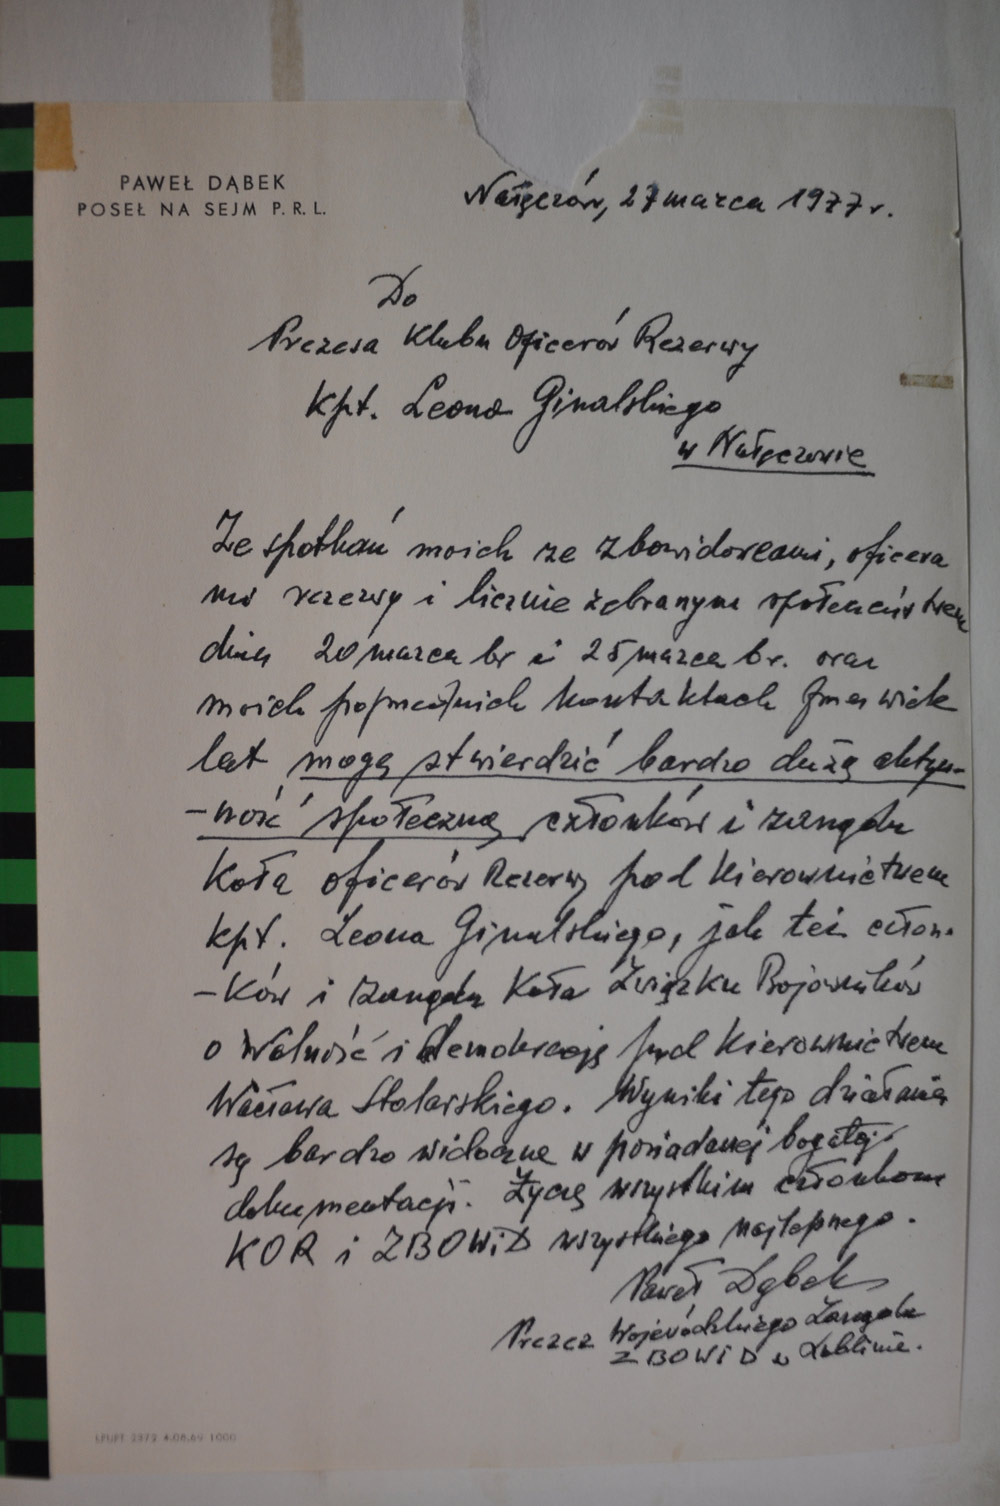 PAWEŁ DĄBEK
POSEŁ NA SEJM P. R. L.
Nałęczów, 27 marca 1977 r.
Do
Prezesa Klubu Oficerów Rezerwy
Kpt. Leona Ginalskiego
w Nałęczowie
Ze spotkań moich ze zbowidowcami, oficera
mi rezerwy i licznie zebranym społeczeństwem
dnia 20 marca br i 25 marca br. oraz
moich poprzednich kontaktach wiele
lat mogę stwierdzić bardzo dużą aktyw-
-ność społeczną członków i zarządu
Koła oficerów Rezerwy pod kierownictwem
kpt. Leona Ginalskiego, jak też człon-
-ków i zarządu Koła Związku Bojowników
o Wolność i demokrację pod kierownictwem
Wacława Stolarskiego. Wyniki tego działania
są bardzo widoczne w posiadanej bogatej
dokumentacji. Życzę wszystkim członkom
KOR i ZBOWiD wszystkiego najlepszego.
Paweł Dąbek
Prezez Wojewódzkiego Zarządu
ZBOWiD w Lublinie.
2372 4.08.69 1000